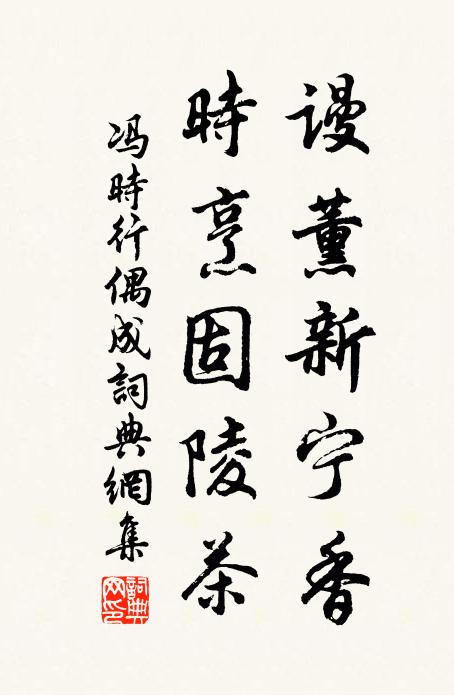 謾薰新宁香
時烹固陵茶
冯時行偶成詞典網集
詞典
网印